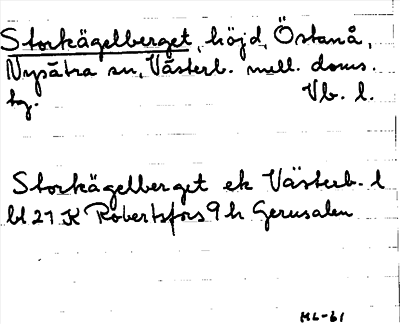 Storkägelberget, höjd, Östanå,
Nysätra sn, Västerb. mell. doms.
hg. Vb. l.
Storkägelberget ek Västerb. l
bl 21 K Robertsfors 9 h Gerusalen
ML-61